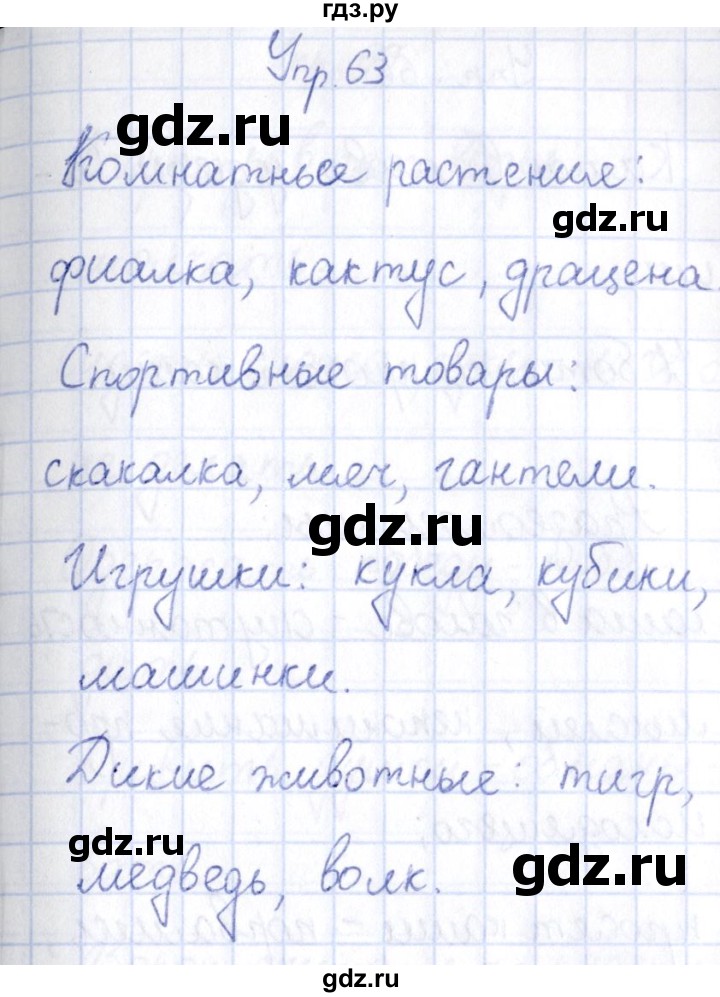 гдз.ру
Упр. 63
gdz.ru
Комнатные растение:
gdz.ru
фиалка, кактус, драцена.
Спортивные товары:
скакалка, мяч, гантели.
gdz.ru
Игрушки: кукла, кубики,
машинки.
Дикие животные: тигр,
gdz.ru
медведь, волк.
gdz.ru
gdz.ru